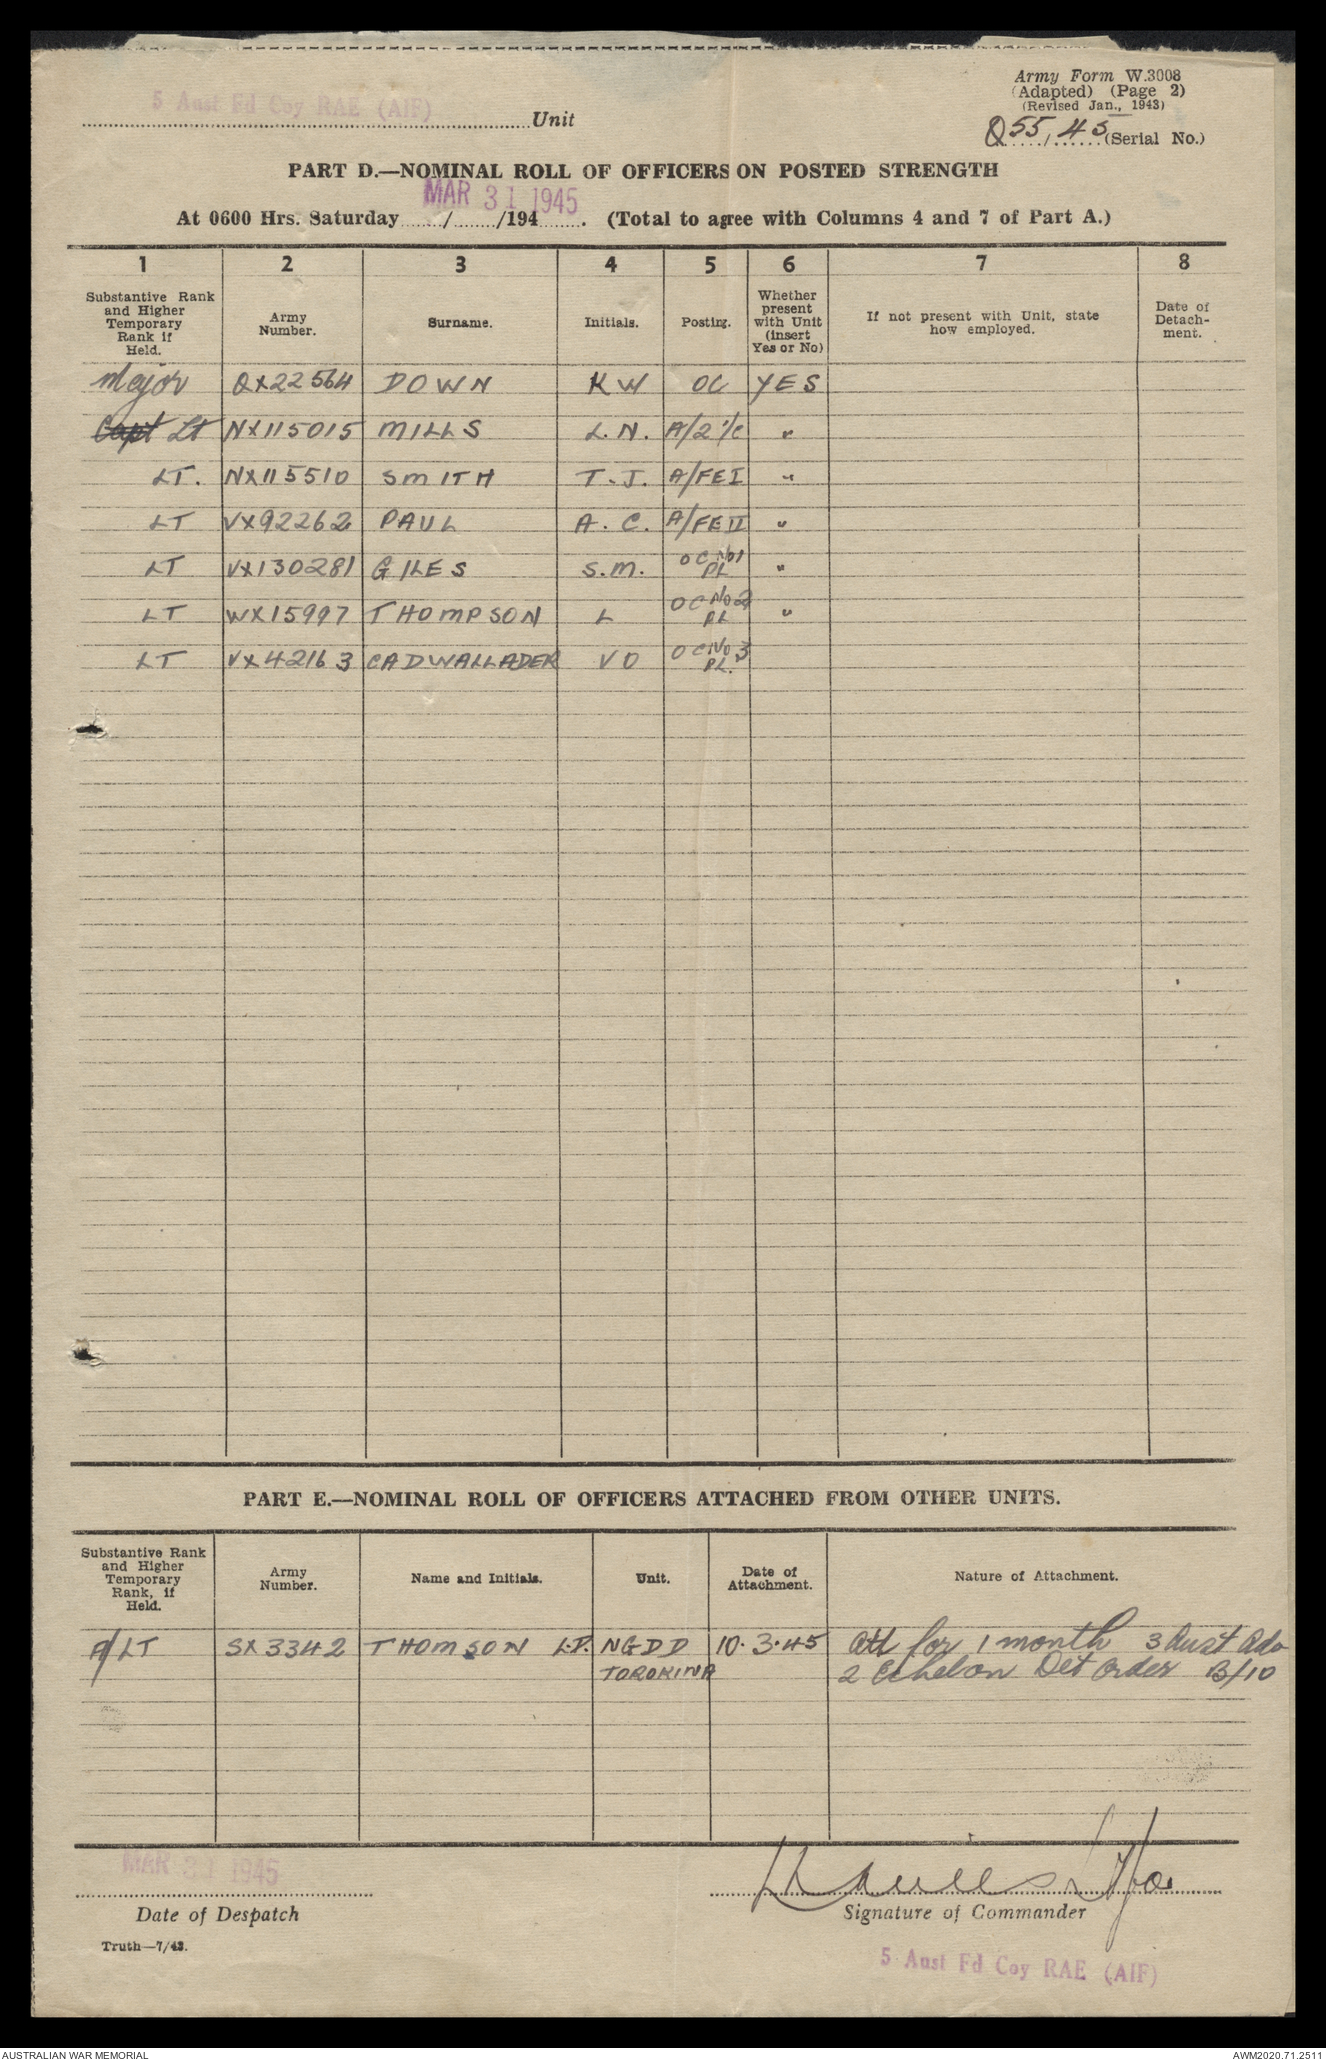 5 Aust Fd Coy RAE (AIF)
Unit
Army Form W.3008
(Adapted) (Page 2)
(Revised Jan., 1943)
Q55/45 (Serial No.)
PART D.—NOMINAL ROLL OF OFFICERS ON POSTED STRENGTH
MAR 31 1945
At 0600 Hrs. Saturday....../......../194....... (Total to agree with Columns 4 and 7 of Part A.)
1 2 3 4 5 6 7 8
Substantive Rank and Higher Temporary Rank if Held.
Army Number.
Surname.
Initials.
Posting.
Whether present with Unit (insert Yes or No)
If not present with Unit, state how employed.
Date of Detach-ment.
Major QX22564 DOWN K W OC YES
Capt Lt NX115015 MILLS L.N. A/2 i/c "
LT. NX115510 SMITH T.J. A/FE I "
LT VX92262 PAUL A.C. A/FE II "
LT VX130281 GILES S.M. OC No1 PL "
LT WX15997 THOMPSON L OC No 2 PL "
LT VX42163 CADWALLADER V O OC No 3 PL.
PART E.—NOMINAL ROLL OF OFFICERS ATTACHED FROM OTHER UNITS.
Substantive Rank and Higher Temporary Rank, if Held.
Army Number.
Name and Initials.
Unit.
Date of Attachment.
Nature of Attachment.
A/LT SX3342 THOMSON L.D. NGDD 10.3.45 Att for 1 month 3 Aust Adv
TOROKINA 2 Echelon Det Order B/10
MAR 31 1945
Date of Despatch
Signature of Commander
Truth—7/43.
5 Aust Fd Coy RAE (AIF)
AUSTRALIAN WAR MEMORIAL
AWM2020.71.2511